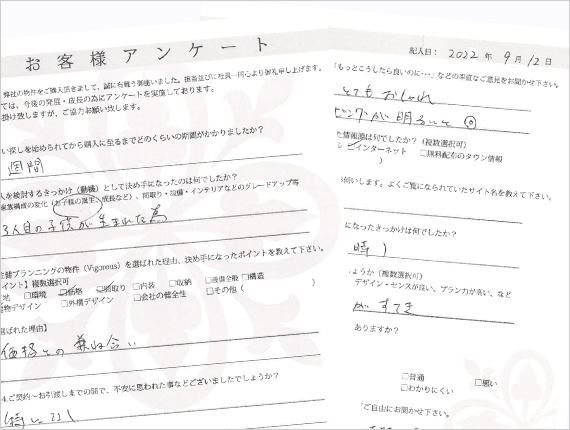 お客様アンケート
弊社の物件をご購入頂きまして、誠に有難う御座いました。担当並びに社員一同心より御礼申し上げます。
ては、今後の発展・成長の為にアンケートを実施しております。
掛け致しますが、ご協力お願い致します。
い探しを始められてから購入に至るまでどのくらいの期間がかかりましたか?
週間
入を検討するきっかけ(動機)として決め手になったのは何でしたか?
家族構成の変化(お子様の誕生、成長など)、間取り・設備・インテリアなどのグレードアップ等
3人目の子供が生まれた為
健プランニングの物件(Vigorous)を選ばれた理由、決め手になったポイントを教えて下さい。
イント】複数選択可
地 □環境 ☑価格 □間取り □内装 □収納 □設備全般 □構造
物デザイン □外構デザイン □会社の健全性 □その他( )
選ばれた理由】
価格との兼ね合い
4.ご契約~お引渡しまでの間で、不安に思われた事などございましたでしょうか?
特になし
記入日: 2022 年 9 月 12 日
「もっとこうしたら良いのに…」などの率直なご意見をお聞かせ下さい。
とてもおしゃれ
ビングが明るいと ◎
た情報源は何でしたか?(複数選択可)
☑インターネット □無料配布のタウン情報
)
伺いします。よくご覧になられていたサイト名を教えて下さい。
になったきっかけは何でしたか?
時)
ょうか(複数選択可)
デザイン・センスが良い、プラン力が高い、など
が すてき
ありますか?
□普通 □悪い
□わかりにくい
ご自由にお聞かせ下さい。